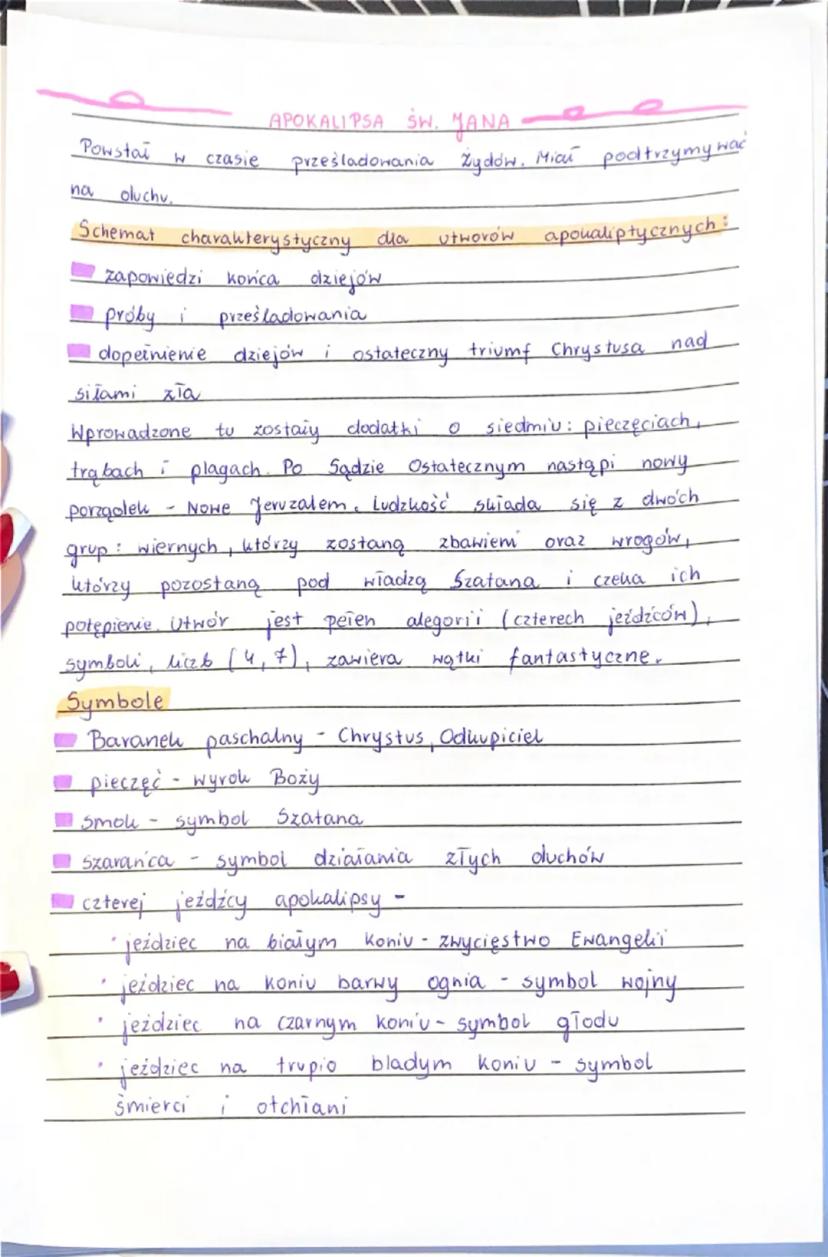 APOKALIPSA ŚW. JANA
Powstał w czasie prześladowania Żydów. Miał podtrzymywać
na duchu.
Schemat charakterystyczny dla utworów apokaliptycznych:
zapowiedzi końca dziejów
próby i prześladowania
dopełnienie dziejów i ostateczny triumf Chrystusa nad
siłami zła
Wprowadzone tu zostały dodatki o siedmiu: pieczęciach,
trąbach i plagach. Po Sądzie Ostatecznym nastąpi nowy
porządek - Nowe Jeruzalem. Ludzkość składa się z dwóch
grup: wiernych, którzy zostaną zbawieni oraz wrogów,
którzy pozostaną pod władzą Szatana i czeka ich
potępienie. Utwór jest pełen alegorii (czterech jeźdźców),
symboli, liczb (4, 7), zawiera wątki fantastyczne.
Symbole
Baranek paschalny - Chrystus, Odkupiciel
pieczęć - wyrok Boży
smok - symbol Szatana
szarańca - symbol działania złych duchów
czterej jeźdźcy apokalipsy -
• jeździec na białym koniu - zwycięstwo Ewangelii
• jeździec na koniu barwy ognia - symbol wojny
• jeździec na czarnym koniu - symbol głodu
• jeździec na trupio bladym koniu - symbol
śmierci i otchłani